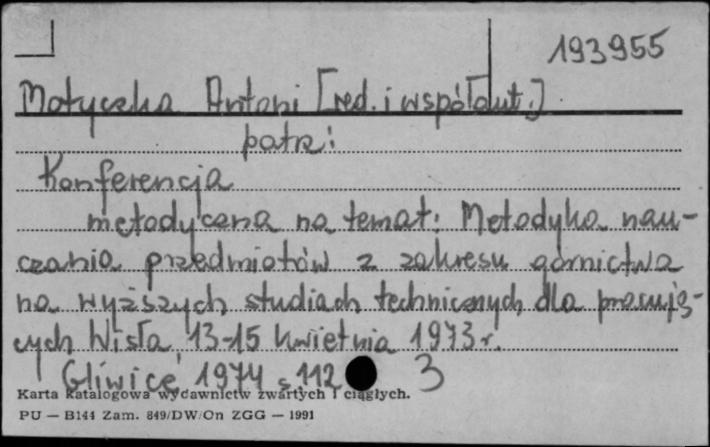 193955
Motyczka Antoni [red. i współaut.]
patrz:
Konferencja
metodyczna na temat: Metodyka nau-
czania przedmiotów z zakresu górnictwa
na wyższych studiach technicznych dla pracują-
cych Wisła 13-15 kwietnia 1973 r.
Gliwice 1974 s 112 3
Karta katalogowa wydawnictw zwartych i ciągłych.
PU — B144 Zam. 849/DW/On ZGG — 1991